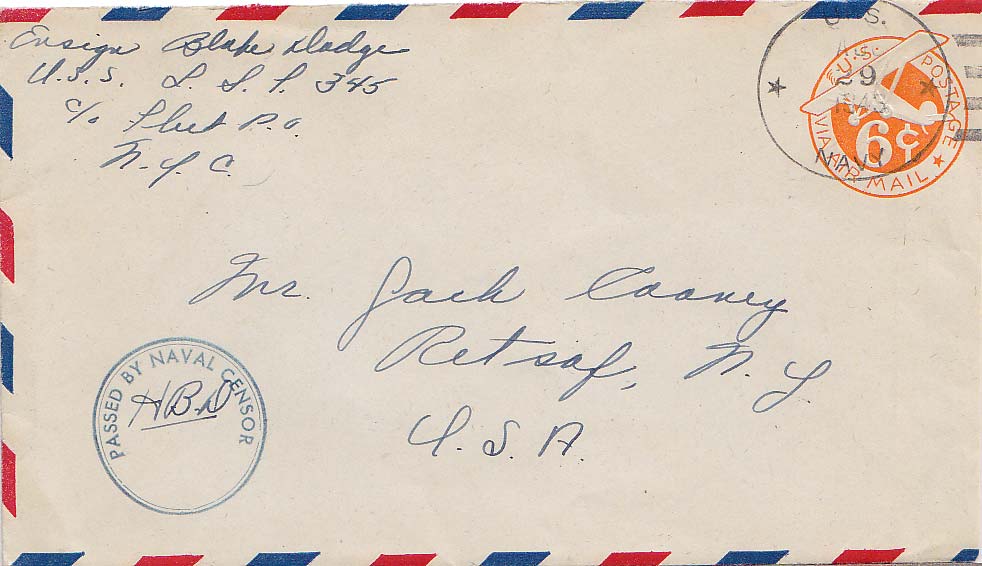 Ensign Blake Dodge
U.S.S. L.S.T. 345
c/o Fleet P.O.
N.Y.C.
U.S.
29
1943
NAVY
U.S. POSTAGE
6¢
VIA AIR MAIL
Mr. Jack Cooney
Retsof, N.Y.
U.S.A.
PASSED BY NAVAL CENSOR
HBD